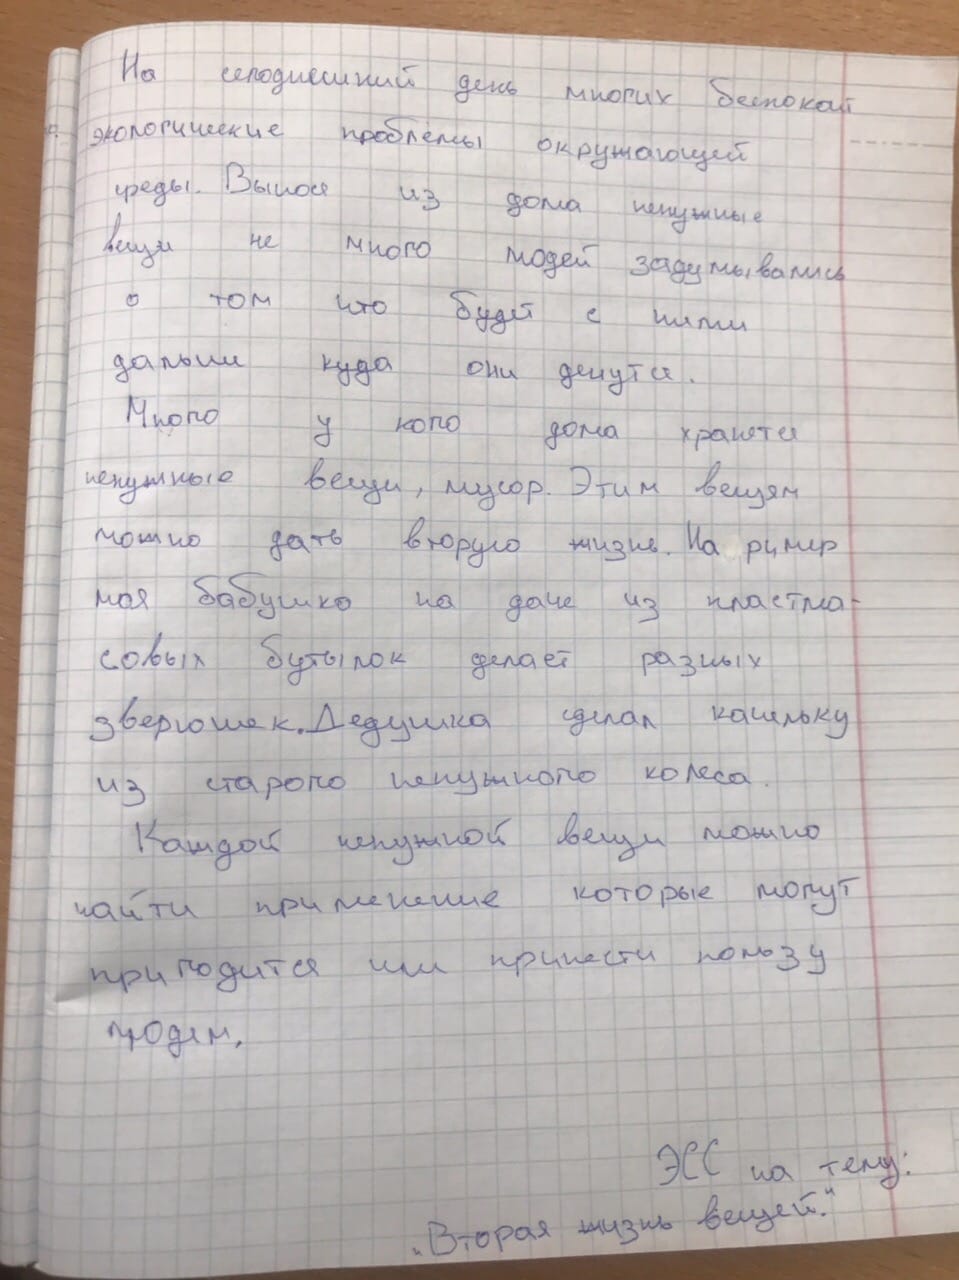 На сегоднешний день многих беспокоит
экологические проблемы окружающей
среды. Вынося из дома ненужные
вещи не много людей задумывались
о том что будет с ними
дальши куда они денутся.
Много у кого дома хранятся
ненужные вещи, мусор. Этим вещям
можно дать вторую жизнь. На ример
моя бабушка на даче из пластма-
совых бутылок делает разных
зверюшек. Дедушка сделал качельку
из старого ненужного колеса.
Каждой ненужной вещи можно
найти применение которые могут
пригодится или принести пользу
людям.
ЭСС на тему:
"Вторая жизнь вещей."